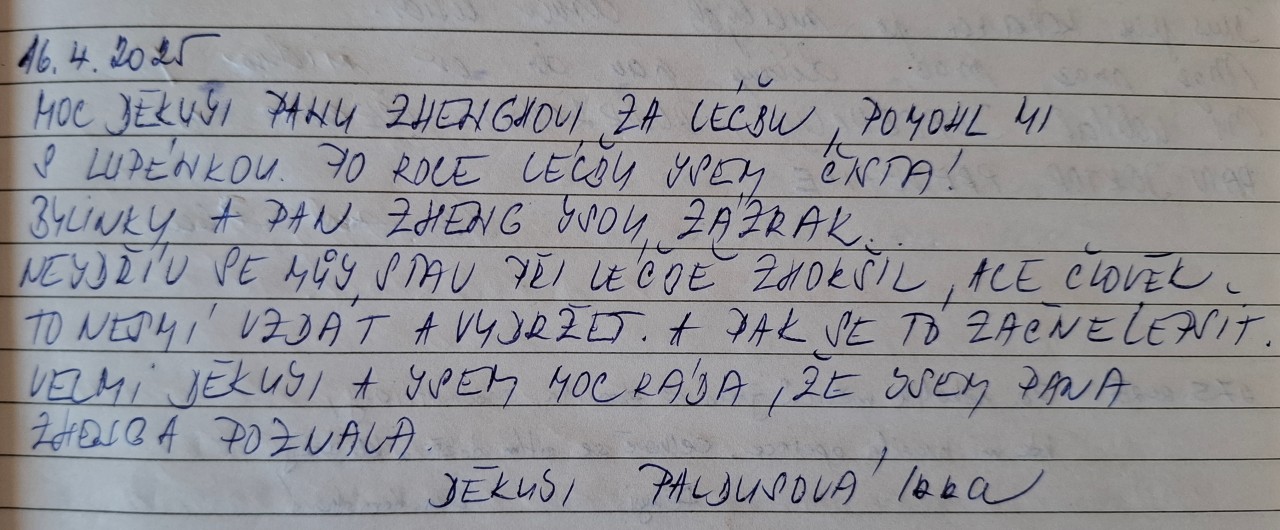 16.4.2025
MOC DĚKUJI PANU ZHENGHOVI ZA LÉČBU, POMOHL MI
S LUPÉNKOU. PO ROCE LÉČBY JSEM ČISTÁ!
BYLINKY A PAN ZHENG JSOU ZÁZRAK.
NEJDŘÍV SE MŮJ STAV PŘI LÉČBĚ ZHORŠIL, ALE ČLOVĚK
TO NESMÍ VZDÁT A VYDRŽET. A PAK SE TO ZAČNE LEPŠIT.
VELMI DĚKUJI A JSEM MOC RÁDA, ŽE JSEM PANA
ZHENGA POZNALA.
DĚKUJI PALDUSOVÁ